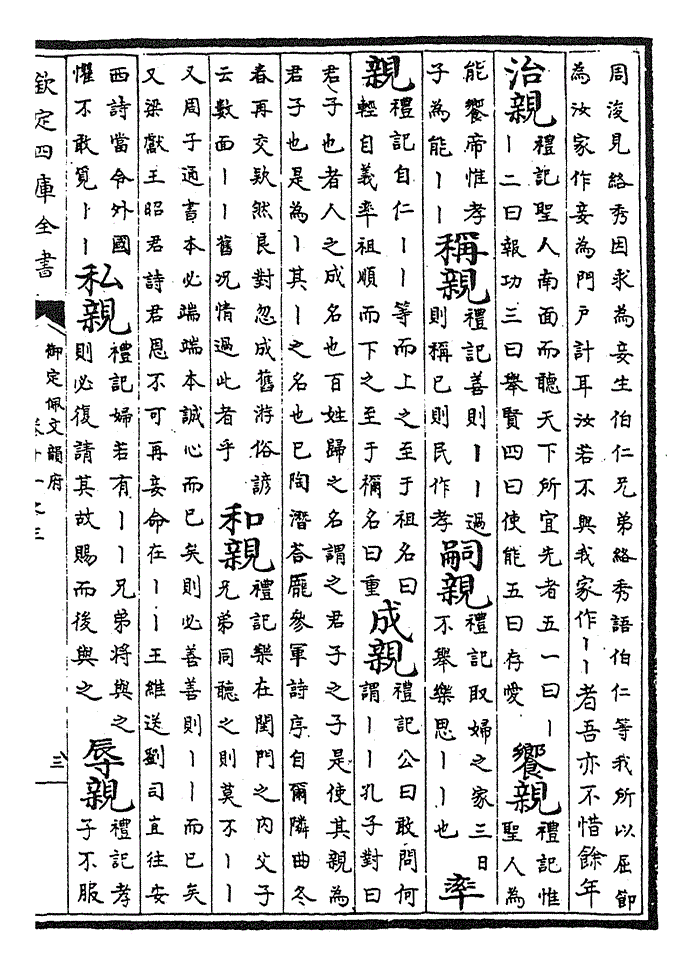 周浚見絡秀因求為妾生伯仁兄弟絡秀語伯仁等我所以屈節
為汝家作妾為門戶計耳汝若不與我家作丨丨者吾亦不惜餘年
治親
禮記聖人南面而聽天下所宜先者五一曰丨
丨二曰報功三曰舉賢四曰使能五曰存愛
饗親
禮記惟
聖人為
能饗帝惟孝
子為能丨丨
稱親
禮記善則丨丨過
則稱己則民作孝
嗣親
禮記取婦之家三日
不舉樂思丨丨也
率
親
禮記自仁丨丨等而上之至于祖名曰
輕自義率祖順而下之至于禰名曰重
成親
禮記公曰敢問何
謂丨丨孔子對曰
君子也者人之成名也百姓歸之名謂之君子之子是使其親為
君子也是為丨其丨之名也已陶潛荅龐參軍詩序自爾隣曲冬
春再交欵然良對忽成舊游俗諺
云數面丨丨舊況情過此者乎
和親
禮記樂在閨門之內父子
兄弟同聽之則莫不丨丨
又周子通書本必端端本誠心而已矣則必善善則丨丨而已矣
又梁獻王昭君詩君恩不可再妾命在丨丨王維送劉司直往安
西詩當令外國
懼不敢覓丨丨
私親
禮記婦若有丨丨兄弟將與之
則必復請其故賜而後與之
辱親
禮記孝
子不服
欽定四庫全書
御定佩文韻府
卷十一之三
三